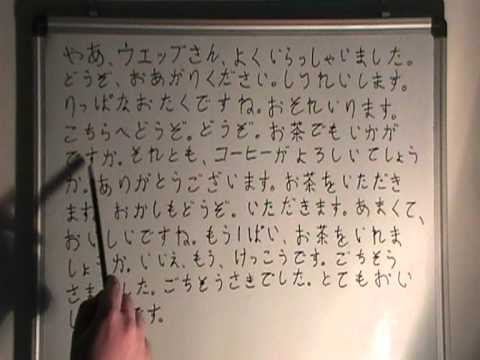 やあ、ウエッブさん、よくいらっしゃいました。
どうぞ、おあがりください。しつれいします。
りっぱなおたくですね。おそれいります。
こちらへどうぞ。どうぞ。お茶でもいかが
ですか。それとも、コーヒーがよろしいでしょう
か。ありがとうございます。お茶をいただき
ます。おかしもどうぞ。いただきます。あまくて、
おいしいですね。もう1ぱい、お茶をいれま
しょうか。いいえ、もう、けっこうです。ごちそう
さま した。ごちそうさきでした。とてもおい
し です。